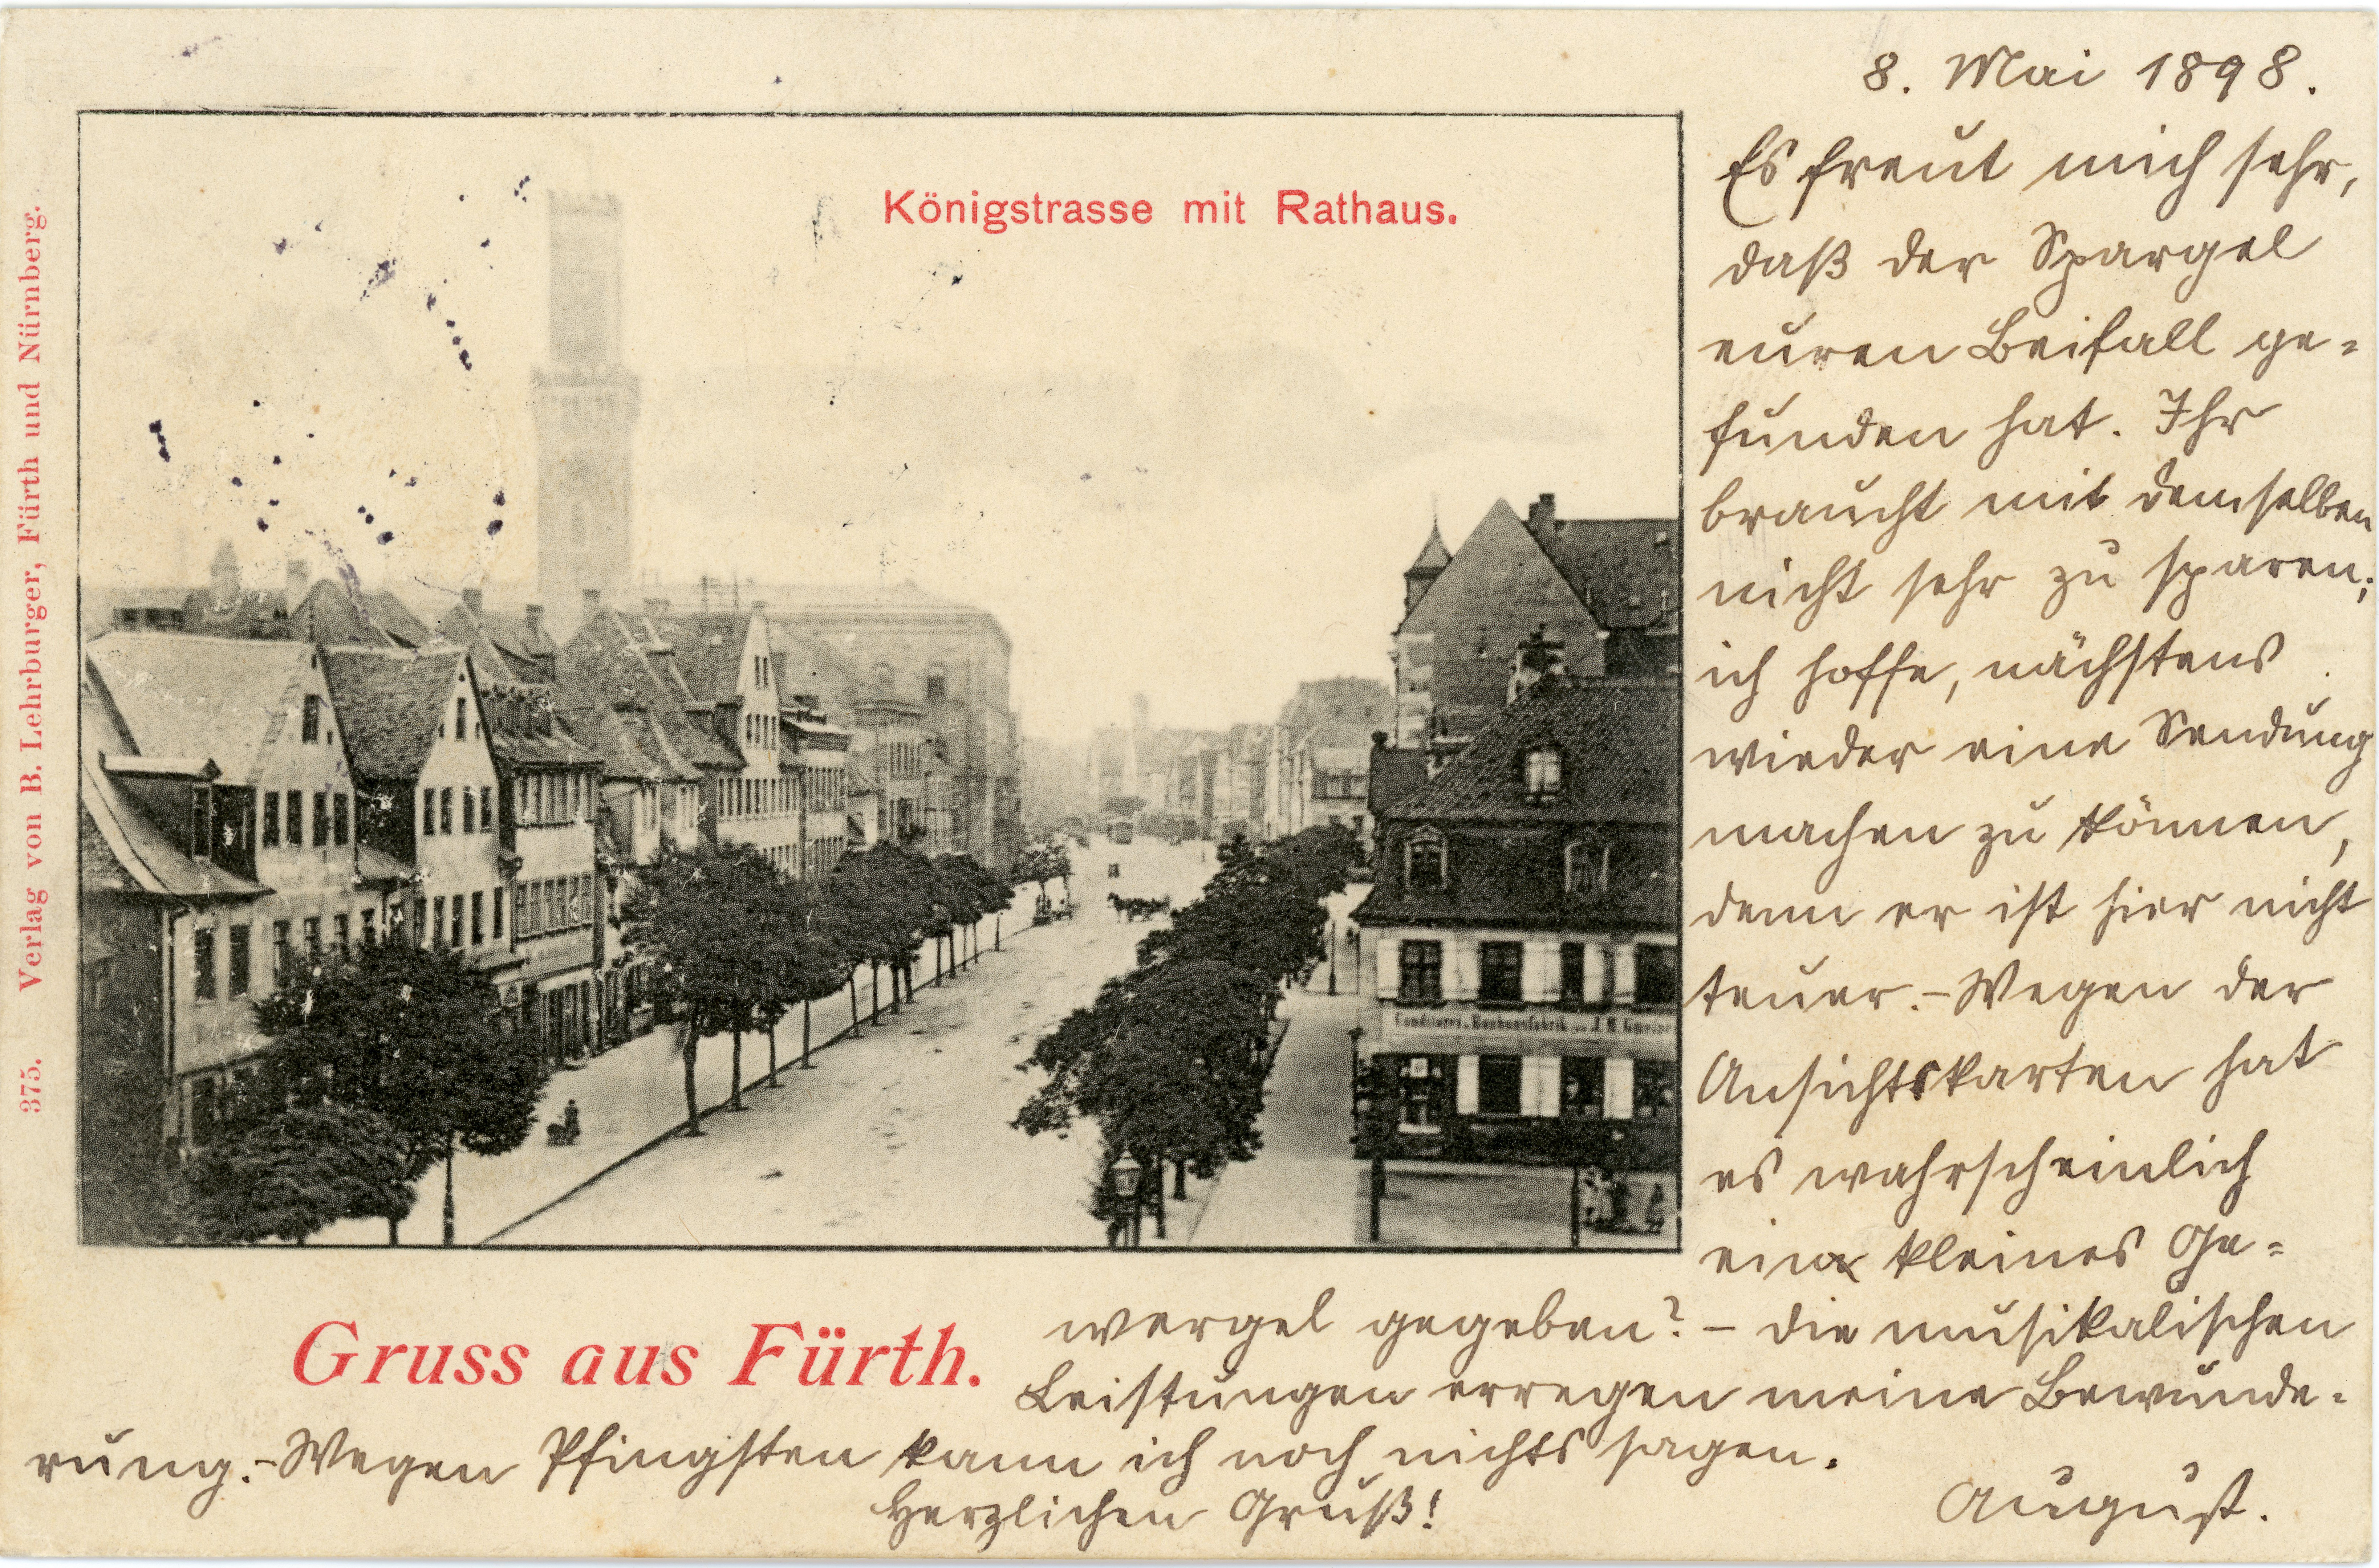 8. Mai 1898.
Es freut mich sehr,
daß der Spargel
euren Beifall ge=
funden hat. Ihr
braucht mit demselben
nicht sehr zu sparen;
ich hoffe, nächstens
wieder eine Sendung
machen zu können,
denn er ist hier nicht
teuer. - Wegen der
Ansichtskarten hat
es wahrscheinlich
ein kleines Ge=
wergel gegeben? - Die musikalischen
Leistungen erregen meine Bewunde=
rung. - Wegen Pfingsten kann ich noch nichts sagen.
Herzlichen Gruß!
August.
Königstrasse mit Rathaus.
Gruss aus Fürth.
375. Verlag von B. Lehrburger, Fürth und Nürnberg.